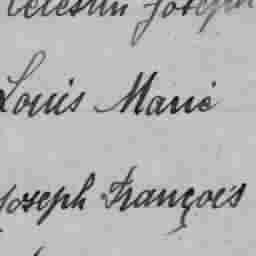 Célestin Joseph
Louis Marie
Joseph François